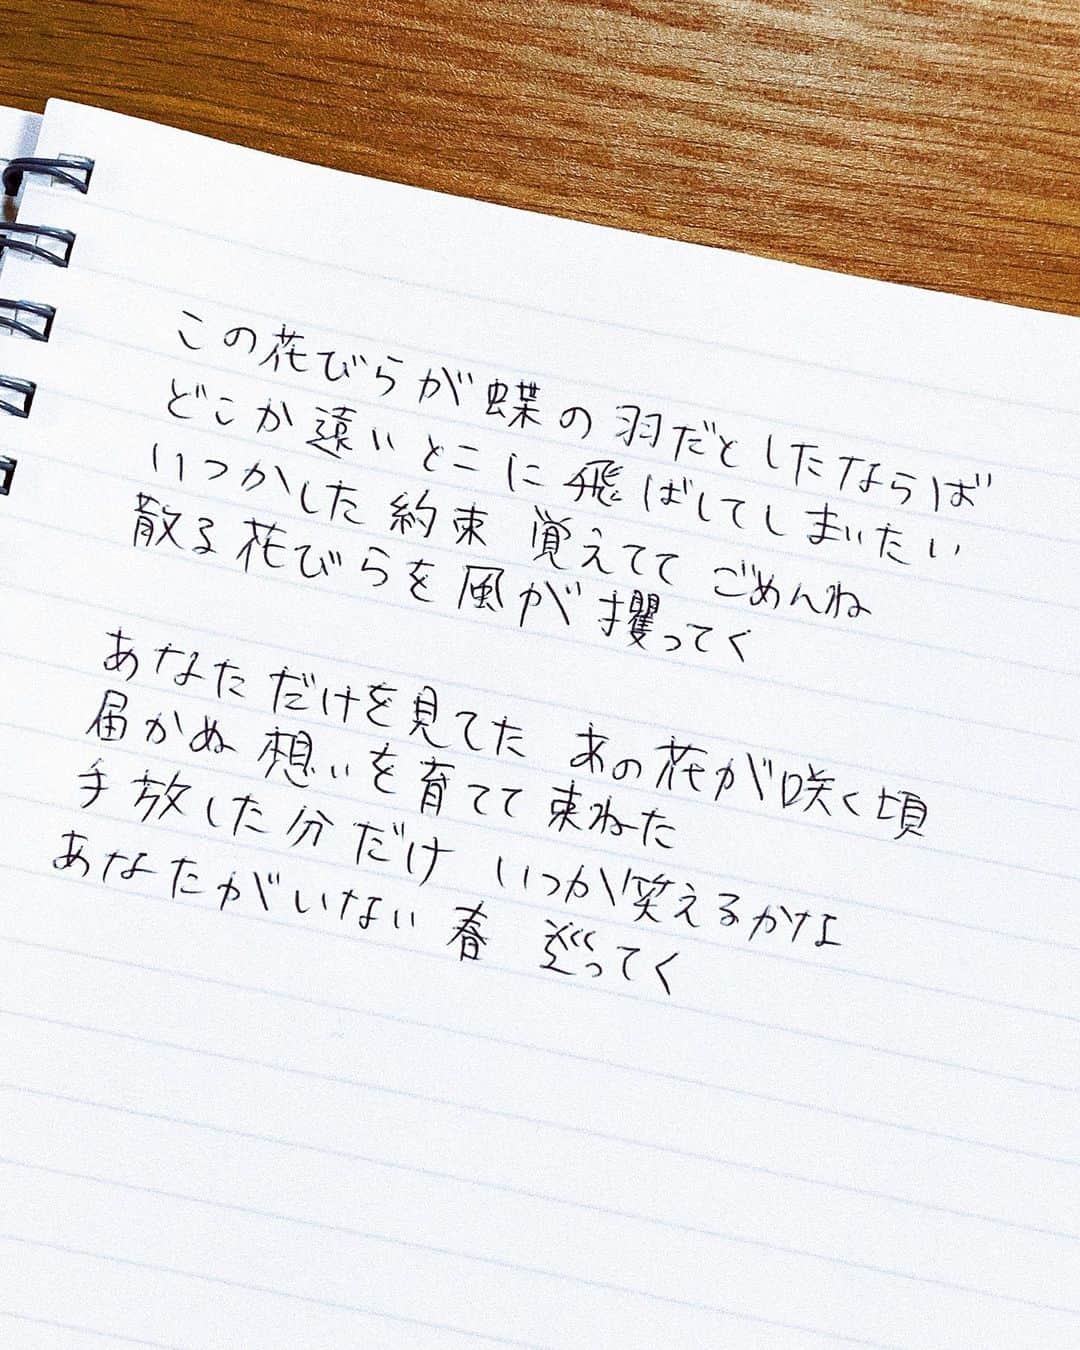 この花びらが蝶の羽だとしたならば
どこか遠いとこに飛ばしてしまいたい
いつかした約束 覚えてて ごめんね
散る花びらを風が攫ってく
あなただけを見てた あの花が咲く頃
届かぬ想いを育てて束ねた
手放した分だけ いつか笑えるかな
あなたがいない春 巡ってく